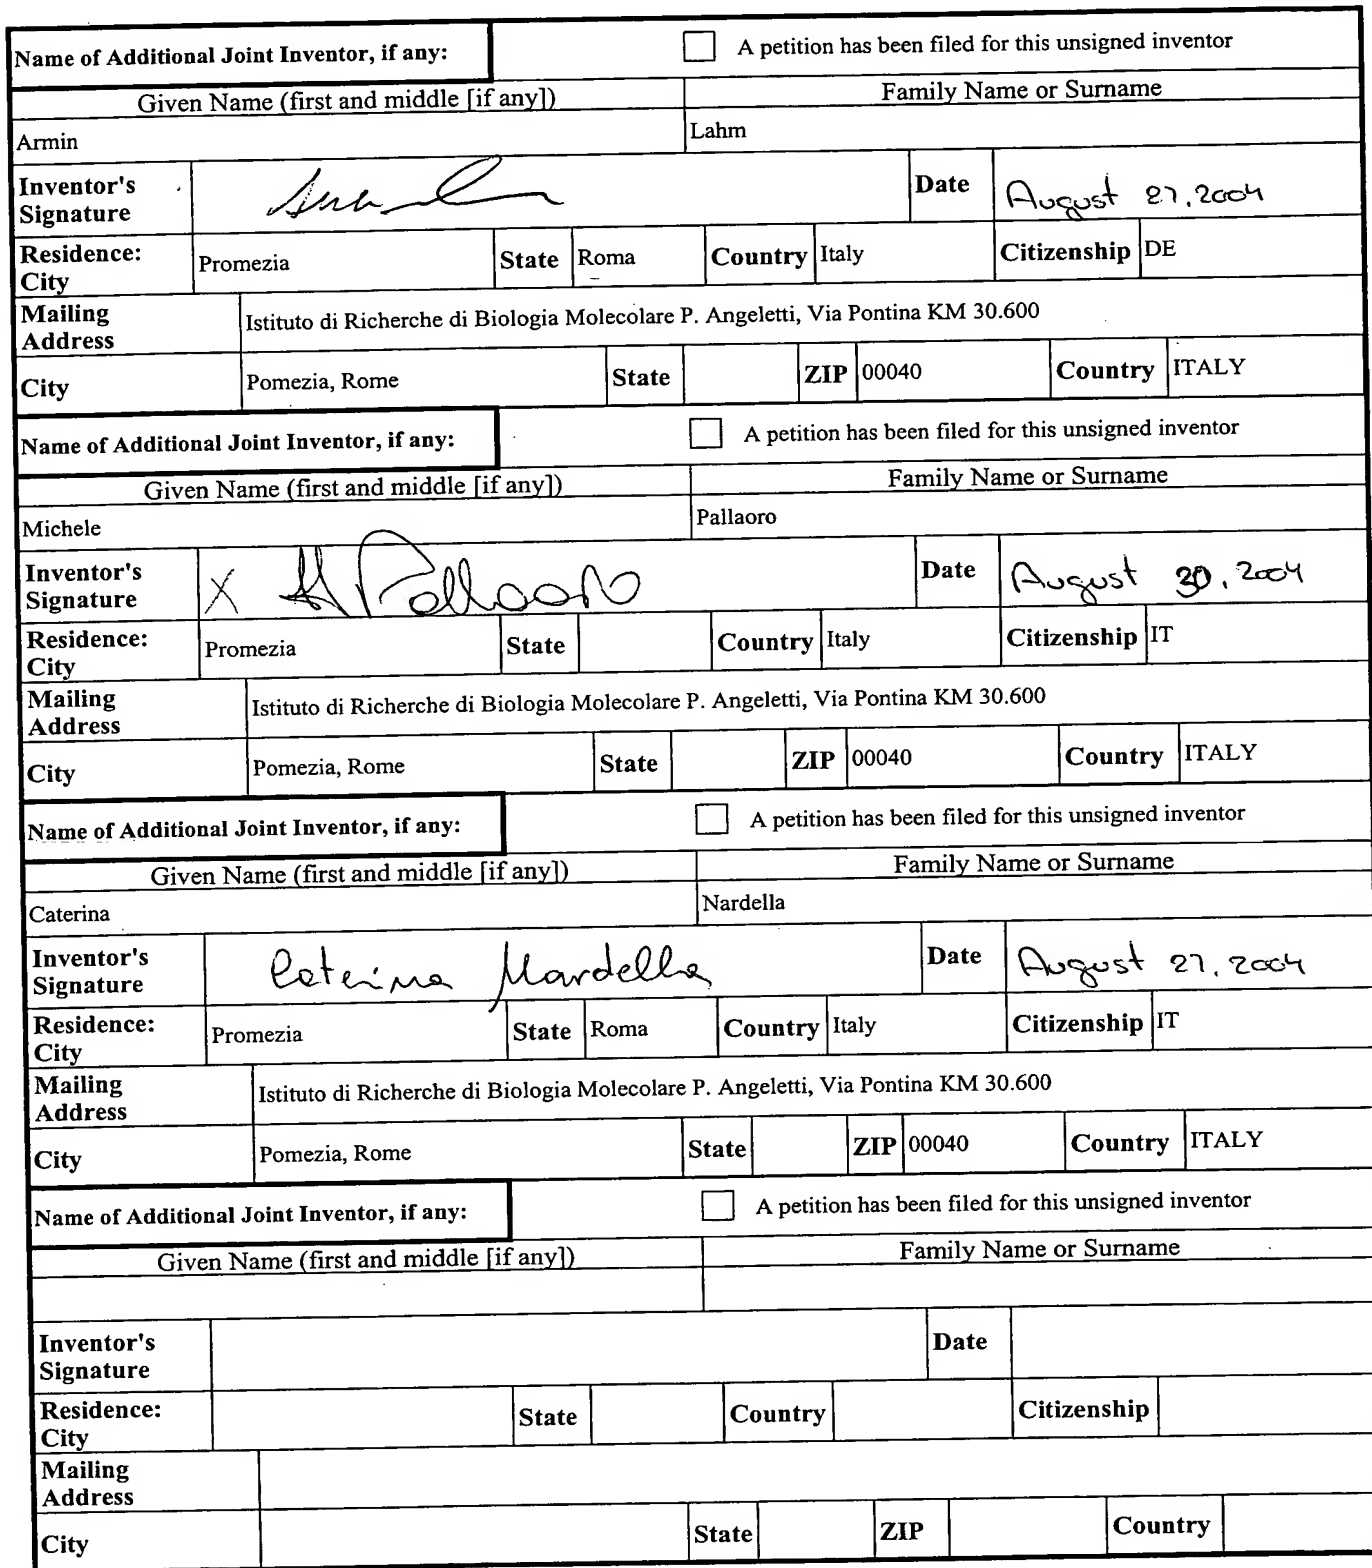 Name of Additional Joint Inventor, if any: A petition has been filed for this unsigned inventor
Given Name (first and middle [if any]) Family Name or Surname
Armin Lahm
Inventor's Signature Date August 27, 2004
Residence: City Promezia State Roma Country Italy Citizenship DE
Mailing Address Istituto di Richerche di Biologia Molecolare P. Angeletti, Via Pontina KM 30.600
City Pomezia, Rome State ZIP 00040 Country ITALY
Name of Additional Joint Inventor, if any: A petition has been filed for this unsigned inventor
Given Name (first and middle [if any]) Family Name or Surname
Michele Pallaoro
Inventor's Signature X M Pallaoro Date August 30, 2004
Residence: City Promezia State Country Italy Citizenship IT
Mailing Address Istituto di Richerche di Biologia Molecolare P. Angeletti, Via Pontina KM 30.600
City Pomezia, Rome State ZIP 00040 Country ITALY
Name of Additional Joint Inventor, if any: A petition has been filed for this unsigned inventor
Given Name (first and middle [if any]) Family Name or Surname
Caterina Nardella
Inventor's Signature Caterina Nardella Date August 27, 2004
Residence: City Promezia State Roma Country Italy Citizenship IT
Mailing Address Istituto di Richerche di Biologia Molecolare P. Angeletti, Via Pontina KM 30.600
City Pomezia, Rome State ZIP 00040 Country ITALY
Name of Additional Joint Inventor, if any: A petition has been filed for this unsigned inventor
Given Name (first and middle [if any]) Family Name or Surname
Inventor's Signature Date
Residence: City State Country Citizenship
Mailing Address
City State ZIP Country